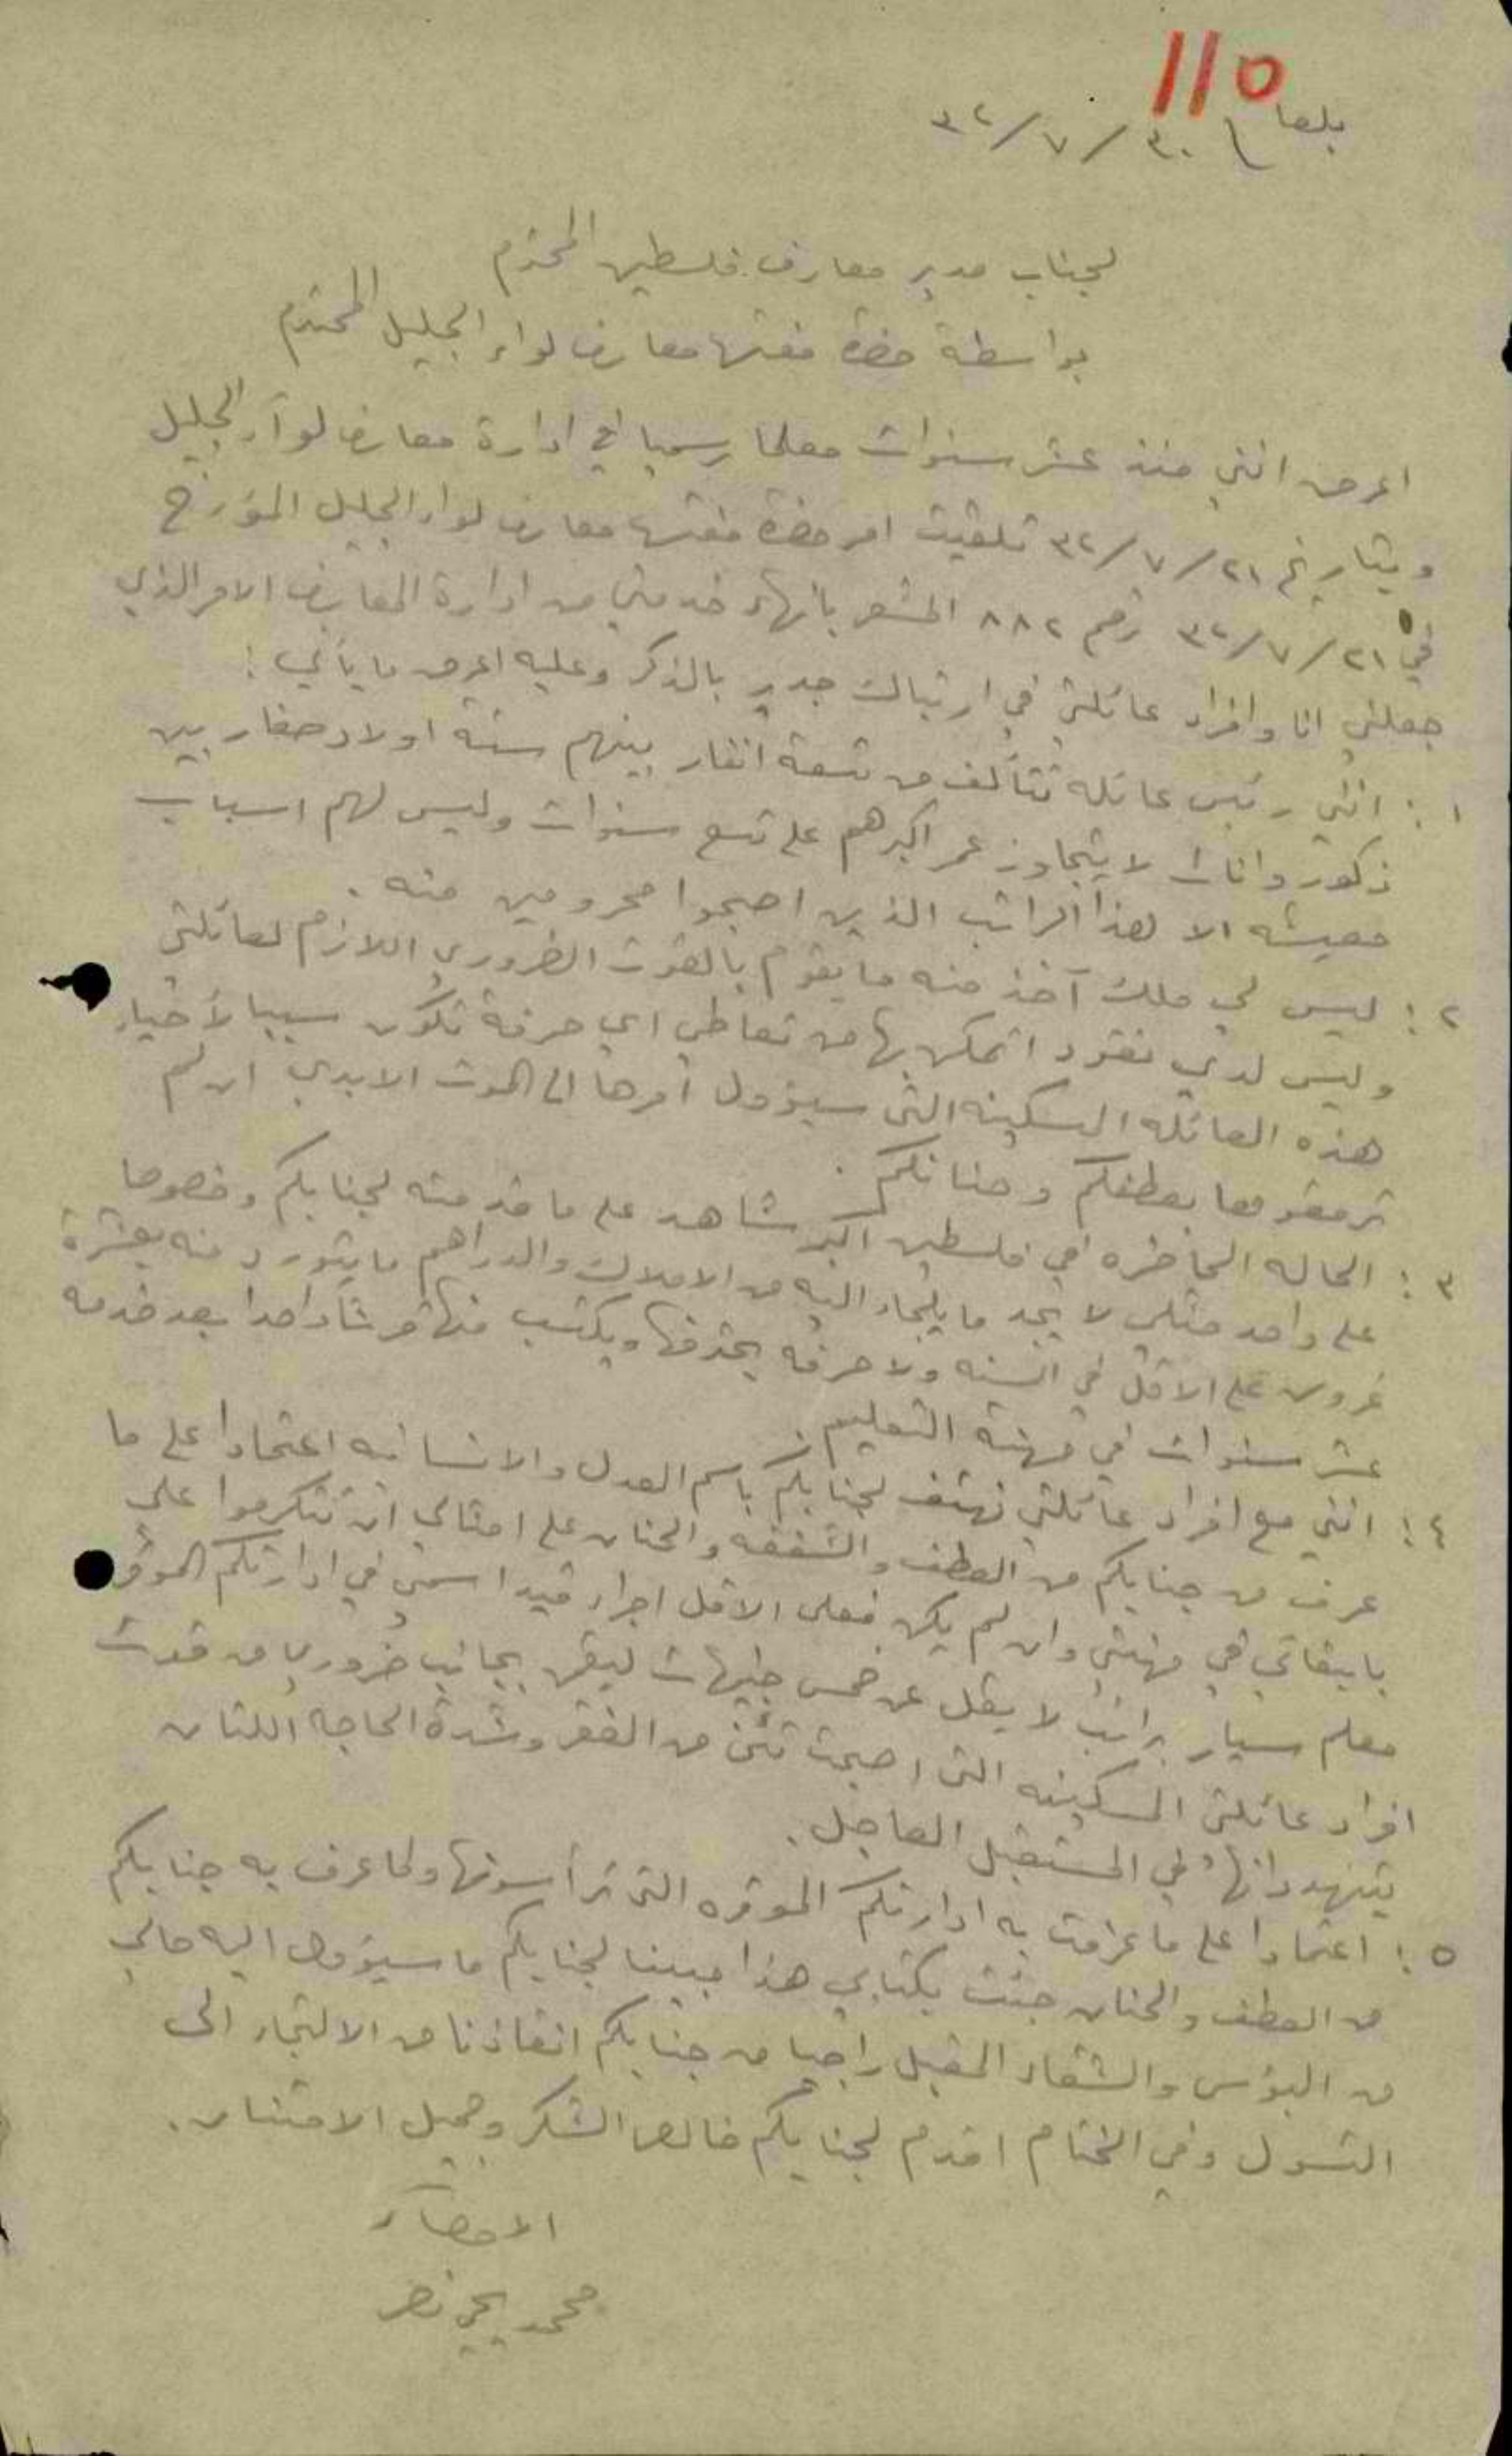 110
بلعا ٣٠/٧/٣٢
لجناب مدير معارف فلسطين المحترم
بواسطة حضرة مفتش معارف لواء الجليل المحترم
اعرض انني منذ عشر سنوات معلما رسميا في ادارة معارف لوآء الجليل
وبتاريخ ٢١/٧/٣٢ تلقيت امر حضرة مفتش معارف لواء الجليل المؤرخ
في ٢١/٧/٣٢ رقم ٨٨٢ المشعر بانهاء خدمتي من ادارة المعارف الامر الذي
جعلني انا وافراد عائلتي في ارتباك جدير بالذكر وعليه اعرض ما يأتي :
١ : انني رئيس عائله تتألف من تسعة انفار بينهم ستة اولاد صغار بين
ذكور واناث لا يتجاوز عمر اكبرهم على تسع سنوات وليس لهم اسباب
معيشه الا هذا الراتب الذين اصبحوا محرومين منه .
٢ : ليس لي ملك آخذ منه ما يقوم بالقوت الضروري اللازم لعائلتي
وليس لدي نقود اتمكن بها من تعاطي اي حرفة تكون سببا لأحياء
هذه العائله المسكينه التي سيؤول أمرها الى الموت الابدي ان لم
ترمقوها بعطفكم وحنانكم .
٣ : الحاله الحاضره في فلسطين اكبر شاهد على ما قدمته لجنابكم وخصوصا
على واحد مثلي لا يجد ما يلجاء اليه من الاملاك والدراهم ما يتورد منه بعشرة
غروش على الاقل في السنه ولا حرفه يحترفها ويكتسب منها قرشاً واحدا بعد خدمه
عشر سنوات في مهنة التعليم .
٤ : انني مع افراد عائلتي نهتف لجنابكم باسم العدل والانسانيه اعتمادا على ما
عرف من جنابكم من العطف والشفقه والحنان على امثالي ان تتكرموا علي
بابقائي في مهنتي وان لم يكن فعلى الاقل اجراء قيد اسمي في ادارتكم الموقره
معلم سيار براتب لا يقل عن خمس جنيهات ليقوم بجانب ضروري من قوت
افراد عائلتي المسكينه التي اصبحت تئن من الفقر وشدة الحاجه اللتان
يتهددانها في المستقبل العاجل .
٥ : اعتمادا على ما عرفت به ادارتكم الموقره التي ترأسونها ولما عرف به جنابكم
من العطف والحنان جئت بكتابي هذا مبينا لجنابكم ما سيؤول اليه حالي
من البؤس والشقاء المقبل راجيا من جنابكم انقاذنا من الالتجاء الى
التسول وفي الختام اقدم لجنابكم خالص الشكر وجميل الامتنان .
الامضاء
محمد يحي نصر